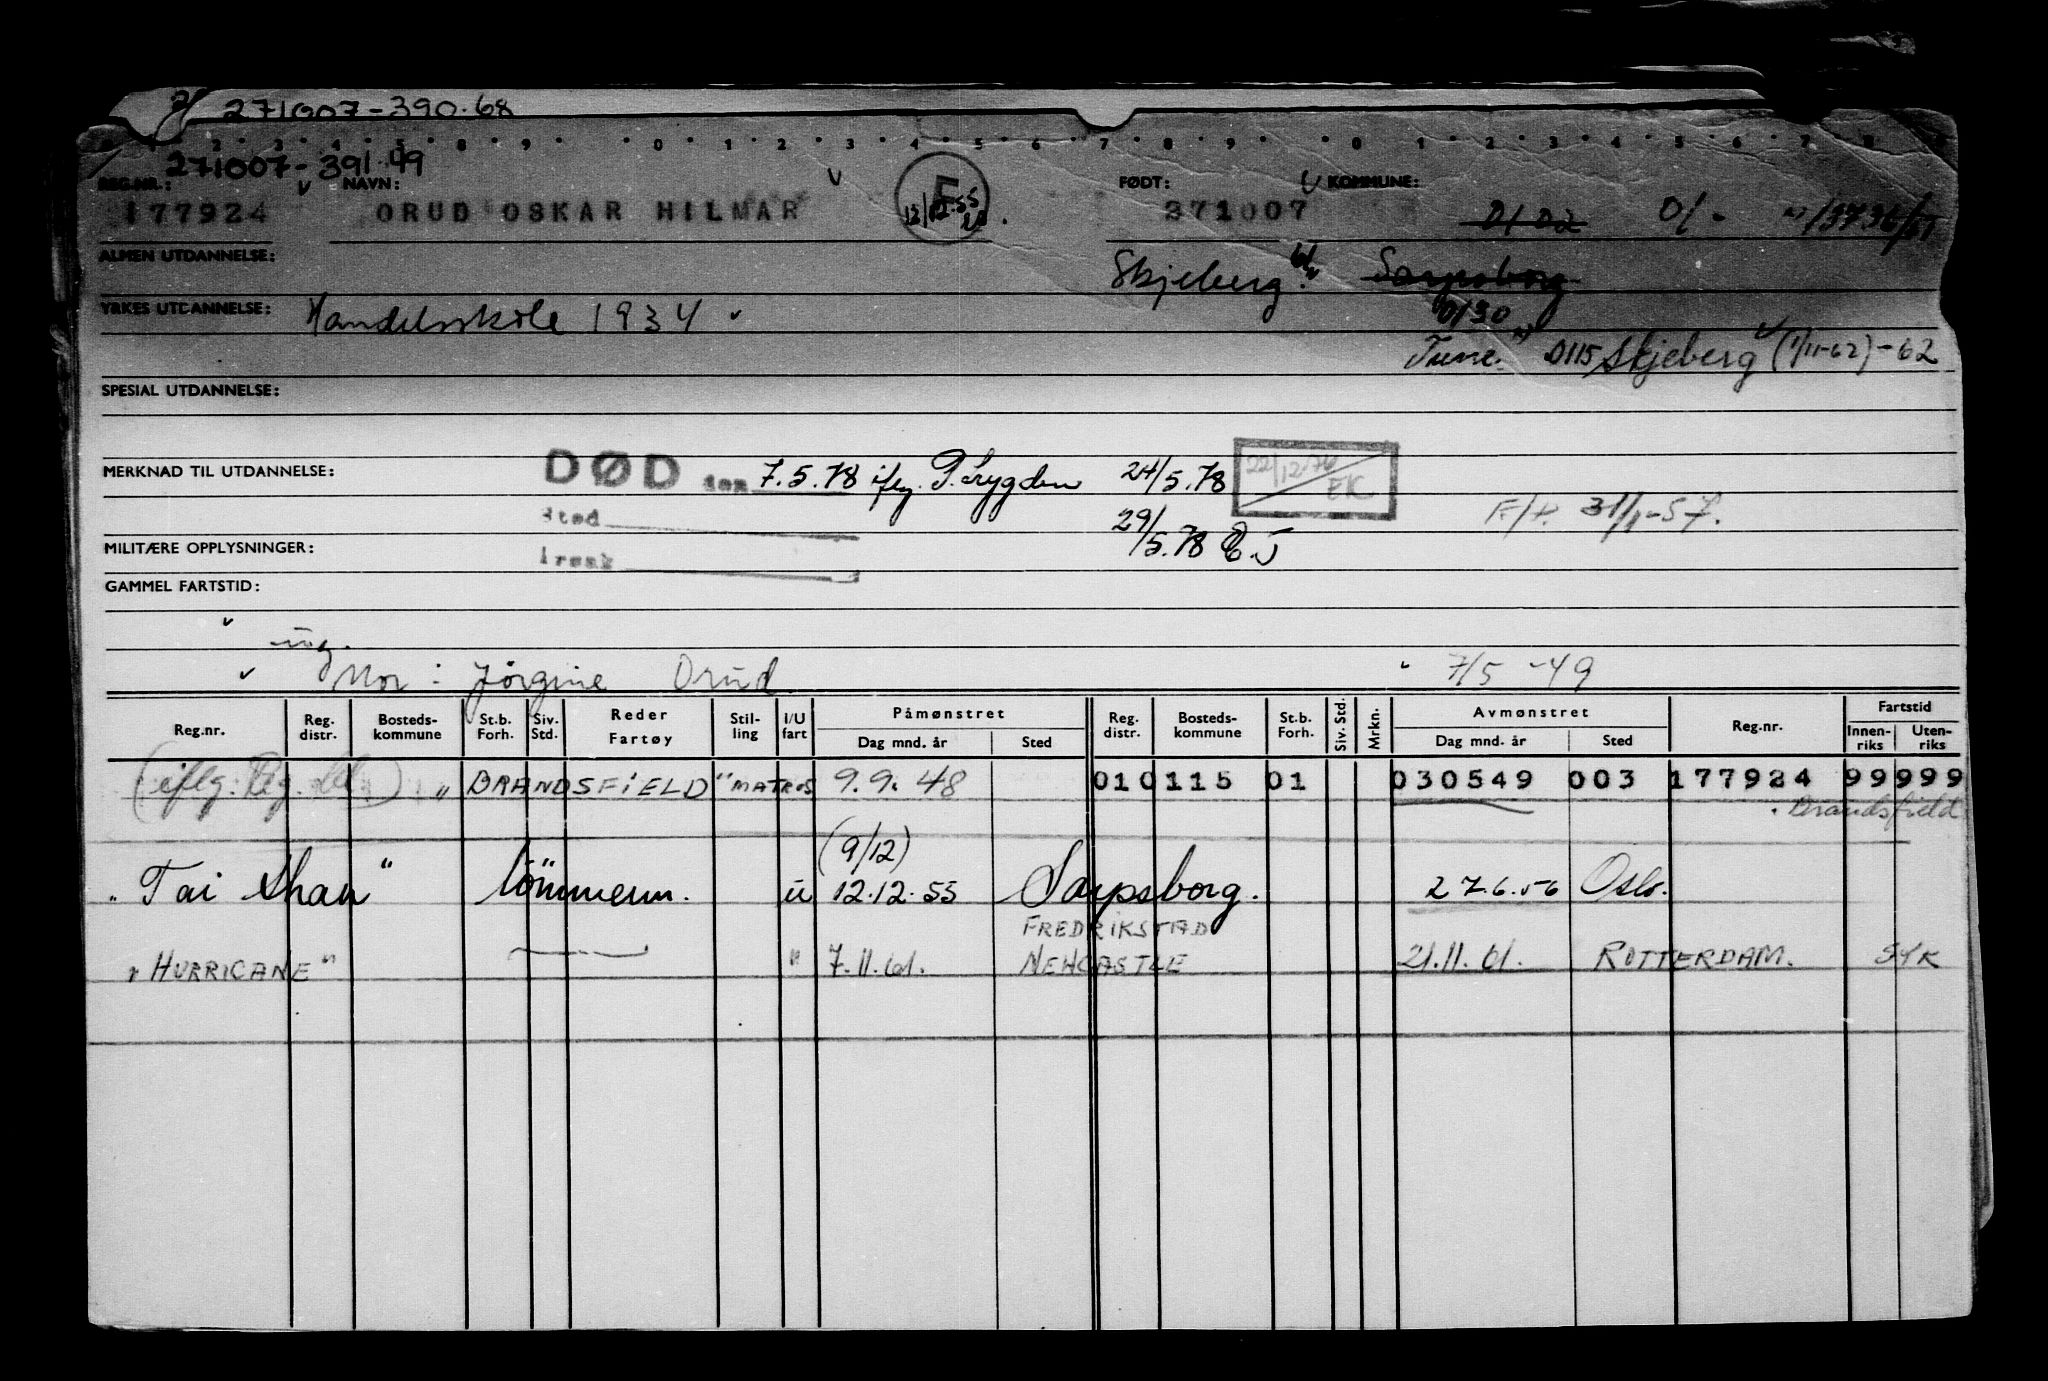 271007-390.68
271007-391 49
REG.NR.: NAVN: FØDT: KOMMUNE:
177924 ORUD OSKAR HILMAR F 12/12.55 371007 0102 01-
ALMEN UTDANNELSE: Skjeberg Sarpsborg
0130
YRKES UTDANNELSE: Handelsskole 1934
Tune. 0115 Skjeberg (1/11-62) -62
SPESIAL UTDANNELSE:
MERKNAD TIL UTDANNELSE: DØD den 7.5.78 iflg. P. Trygden 24/5.78 22/12.76 EK
Sted 29/5.78 F/t. 31/1-57.
MILITÆRE OPPLYSNINGER: Årsak
GAMMEL FARTSTID:
ug.
Mor: Jörgine Orud 7/5-49
Reg.nr. Reg. distr. Bosteds- kommune St.b. Forh. Siv. Std. Reder Fartøy Stil- ling I/U fart Påmønstret Dag mnd. år Sted Reg. distr. Bosteds- kommune St.b. Forh. Siv. Std. Mrkn. Avmønstret Dag mnd. år Sted Reg.nr. Fartstid Innen- riks Uten- riks
(iflg. Reg. ) "BRANDSFIELD" MATROS 9.9.48 010115 01 030549 003 177924 99999
Brandsfield
(9/12)
"Tai Shan" tömmerm. u 12.12.55 Sarpsborg. 27.6.56 Oslo.
FREDRIKSTAD
"HURRICANE" " 7.11.61. NEWCASTLE 21.11.61. ROTTERDAM. SYK